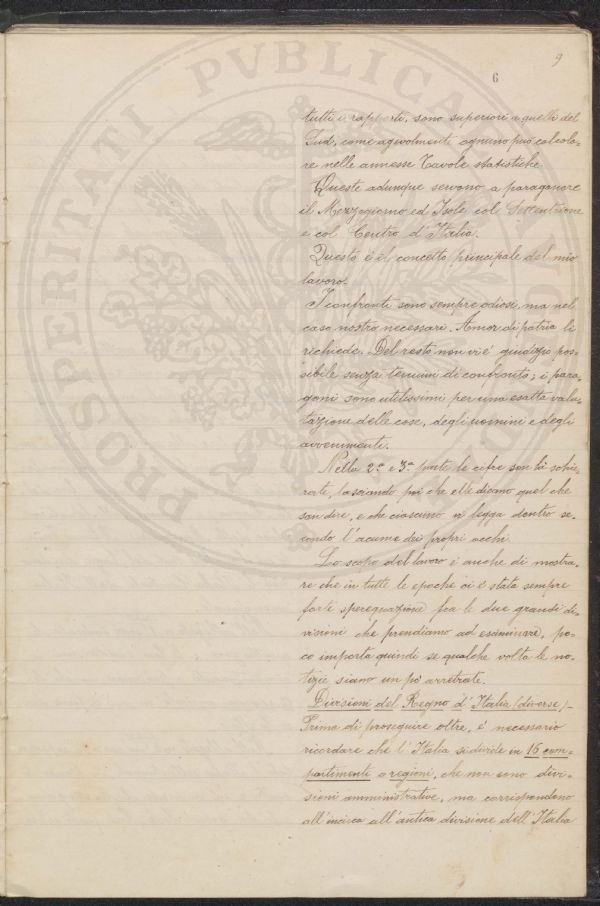 PROSPERITATI PVBLICAE
9
6
tutti i rapporti, sono superiori a quelli del
Sud, come agevolmente ognuno può calcola-
re nelle annesse Tavole statistiche.
Queste adunque servono a paragonare
il Mezzogiorno ed Isole col Settentrione
e col Centro d'Italia.
Questo è il concetto principale del mio
lavoro.
I confronti sono sempre odiosi, ma nel
caso nostro necessari. Amor di patria li
richiede. Del resto non vi è giudizio pos-
sibile senza termini di confronto; i para-
goni sono utilissimi per una esatta valu-
tazione delle cose, degli uomini e degli
avvenimenti.
Nella 2a e 3a parte le cifre son lì schie-
rate, lasciando poi che elle dicano quel che
san dire, e che ciascuno vi legga dentro se-
condo l'acume dei propri occhi.
Lo scopo del lavoro è anche di mostra-
re che in tutte le epoche vi è stata sempre
forte sperequazione fra le due grandi di-
visioni che prendiamo ad esaminare, po-
co importa quindi se qualche volta le no-
tizie siano un po' arretrate.
Divisioni del Regno d'Italia (diverse)-
Prima di proseguire oltre, è necessario
ricordare che l'Italia si divide in 16 com-
partimenti o regioni, che non sono divi-
sioni amministrative, ma corrispondono
all'incirca all'antica divisione dell'Italia